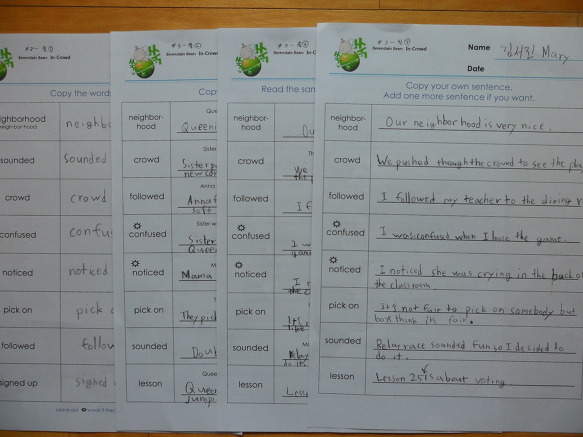 Copy the word
neighborhood
neigh·bor·hood
neighb
sounded
sounded
crowd
crowd
confused
confus
noticed
noticed
pick on
pick
followed
follow
signed up
signed
Berenstain Bears In-Crowd
neighbor-
hood
Queen
crowd
Sister
followed
Anna
soft
confused
Sister
Queen
noticed
Mama
pick on
They pick
sounded
lesson
Queen
jump
Berenstain Bears In-Crowd
Read the sam
neighbor-
hood
Ou
crowd
We
followed
I f
confused
I w
noticed
pick on
It's
sounded
Relay
do it.
lesson
Less
Berenstain Bears In-Crowd
Name 김서진 Mary
Date
Copy your own sentence.
Add one more sentence if you want.
neighbor-
hood
Our neighborhood is very nice.
crowd
We pushed though the crowd to see the pla
followed
I followed my teacher to the dining r
confused
I was confused when I loose the game.
noticed
I noticed she was crying in the back of
the classroom.
pick on
It's not fair to pick on somebody but
boys think it's fair.
sounded
Relay race sounded fun so I decided to
do it.
lesson
Lesson 25 is about voting.